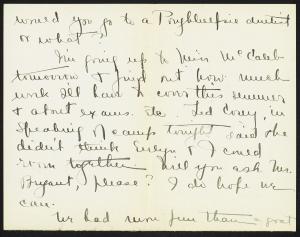 would you go to a Poughkeepsie dentist
or what?
I'm going up to Miss McCaleb
tomorrow & find out how much
work I'll have to cover this summer
& about exams. etc. Ted Corey, in
speaking of camps tonight said she
didn't think Evelyn & I could
room together. Will you ask Mr.
Bryant, please? I do hope we
can.
We had more fun than a goat